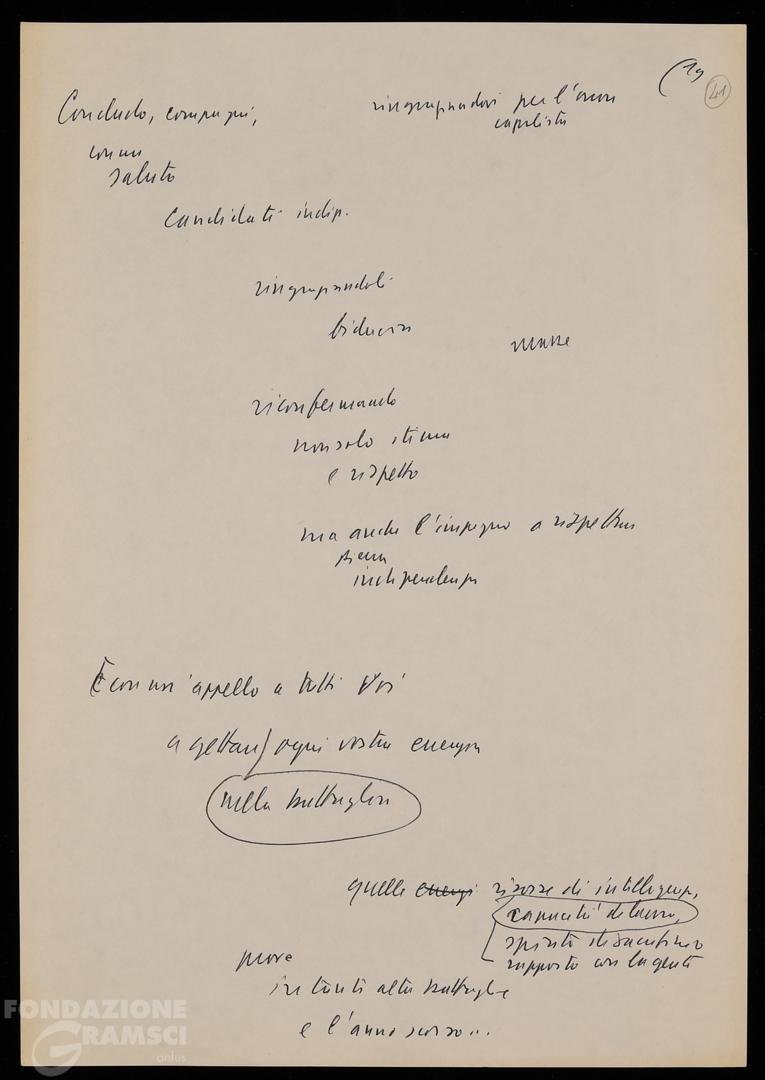 (19
41
Concludo, compagni,
ringraziandovi per l'onor
capolista
con un
saluto
Candidati indip.
ringraziandoli
fiducia
riconfermando
non solo stima
e rispetto
ma anche l'impegno a rispettare
piena
indipendenza
E con un'appello a tutti Voi
a gettare ogni vostra energia
nella battaglia
quelle energi risorse di intelligenza,
capacità di lavoro,
spirito di sacrificio
rapporto con la gente
prove
in tante altre battaglie
e l'anno scorso...
FONDAZIONE
GRAMSCI
onlus